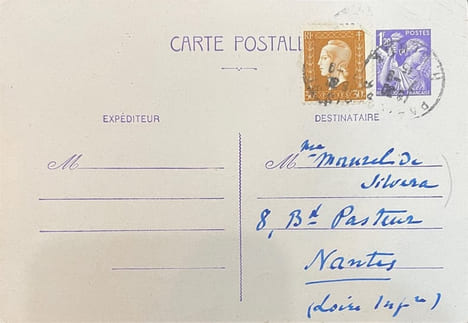 CARTE POSTALE
RF
30
1,20
POSTES
FRANÇAISES
EXPÉDITEUR
DESTINATAIRE
M
Mme Mourels de
Silvera
8, Bd Pasteur
Nantes
(Loire Infre)